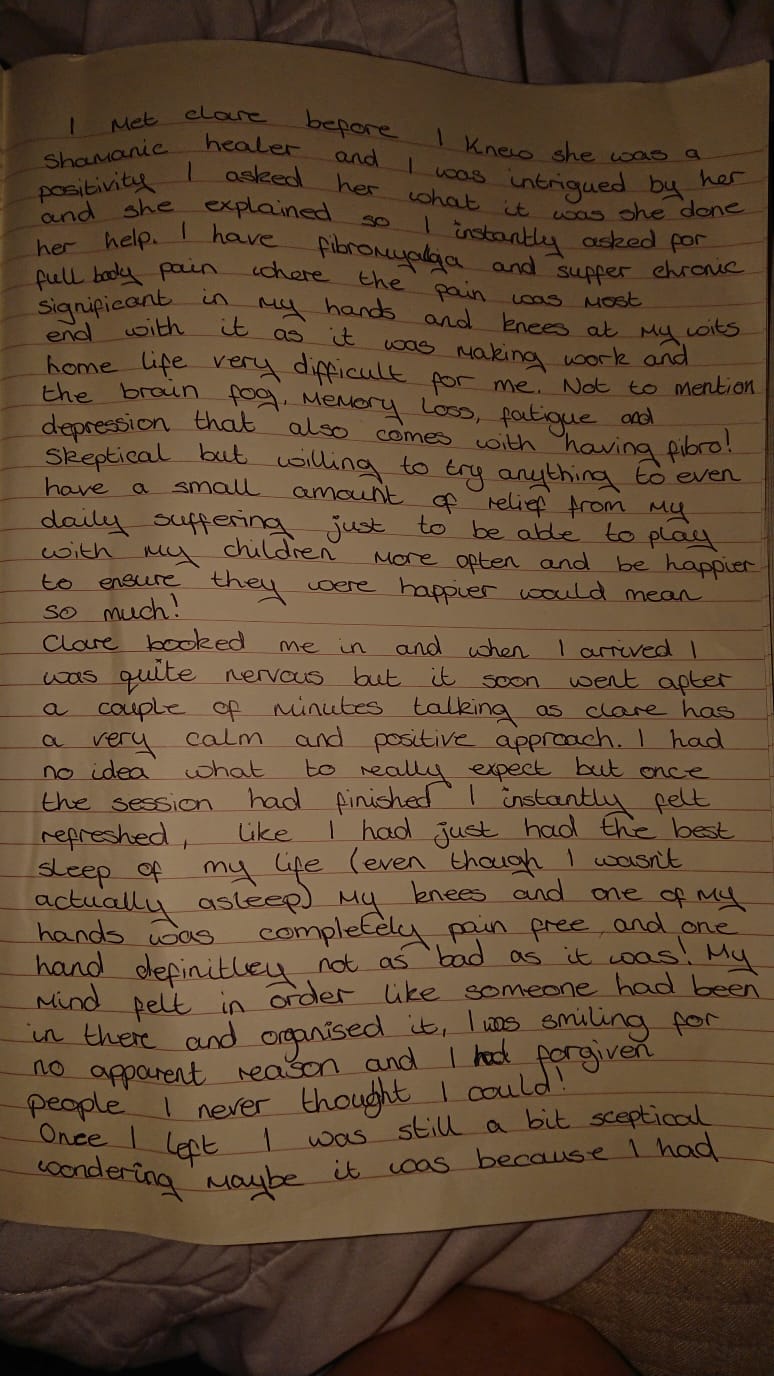 I Met clare before I Knew she was a
Shamanic healer and I was intrigued by her
positivity I asked her what it was she done
and she explained so I instantly asked for
her help. I have fibromyalga and suffer chronic
full body pain where the pain was most
significant in my hands and knees at my wits
end with it as it was making work and
home life very difficult for me. Not to mention
the brain fog, memory loss, fatigue and
depression that also comes with having fibro!
Skeptical but willing to try anything to even
have a small amount of relief from my
daily suffering just to be able to play
with my children more often and be happier
to ensure they were happier would mean
so much!
Clare booked me in and when I arrived I
was quite nervous but it soon went after
a couple of minutes talking as clare has
a very calm and positive approach. I had
no idea what to really expect but once
the session had finished I instantly felt
refreshed, like I had just had the best
sleep of my life (even though I wasn't
actually asleep) My knees and one of my
hands was completely pain free, and one
hand definitley not as bad as it was! My
mind felt in order like someone had been
in there and organised it, I was smiling for
no apparent reason and I had forgiven
people I never thought I could!
Once I left I was still a bit sceptical
wondering maybe it was because I had